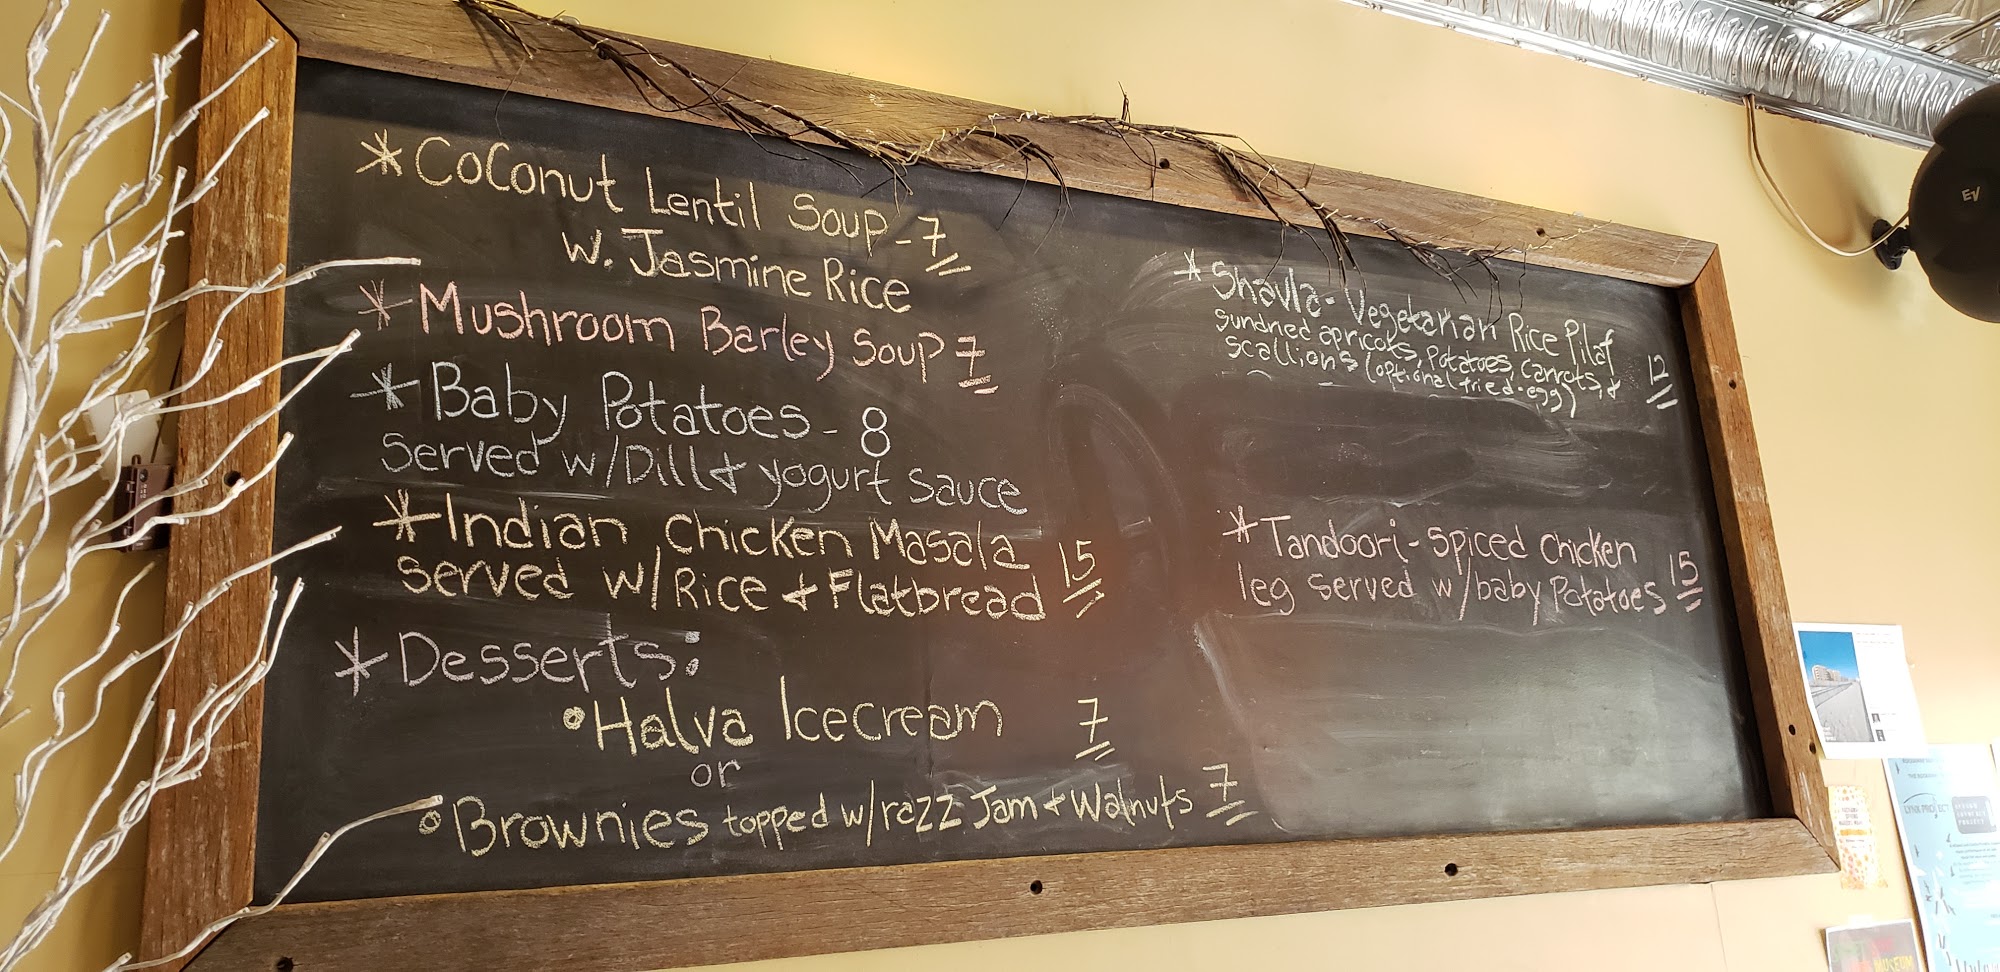 *Coconut Lentil Soup - 7
w. Jasmine Rice
*Mushroom Barley Soup 7
*Baby Potatoes - 8
served w/Dill + yogurt sauce
*Indian Chicken Masala
served w/Rice + Flatbread 15
*Desserts:
•Halva Icecream 7
or
•Brownies topped w/razz Jam + Walnuts 7
*Shavla - Vegetarian Rice Pilaf
sundried apricots, potatoes, carrots, +
scallions (optional fried-egg) 12
*Tandoori-spiced chicken
leg served w/baby Potatoes 15
EV
MUSEUM